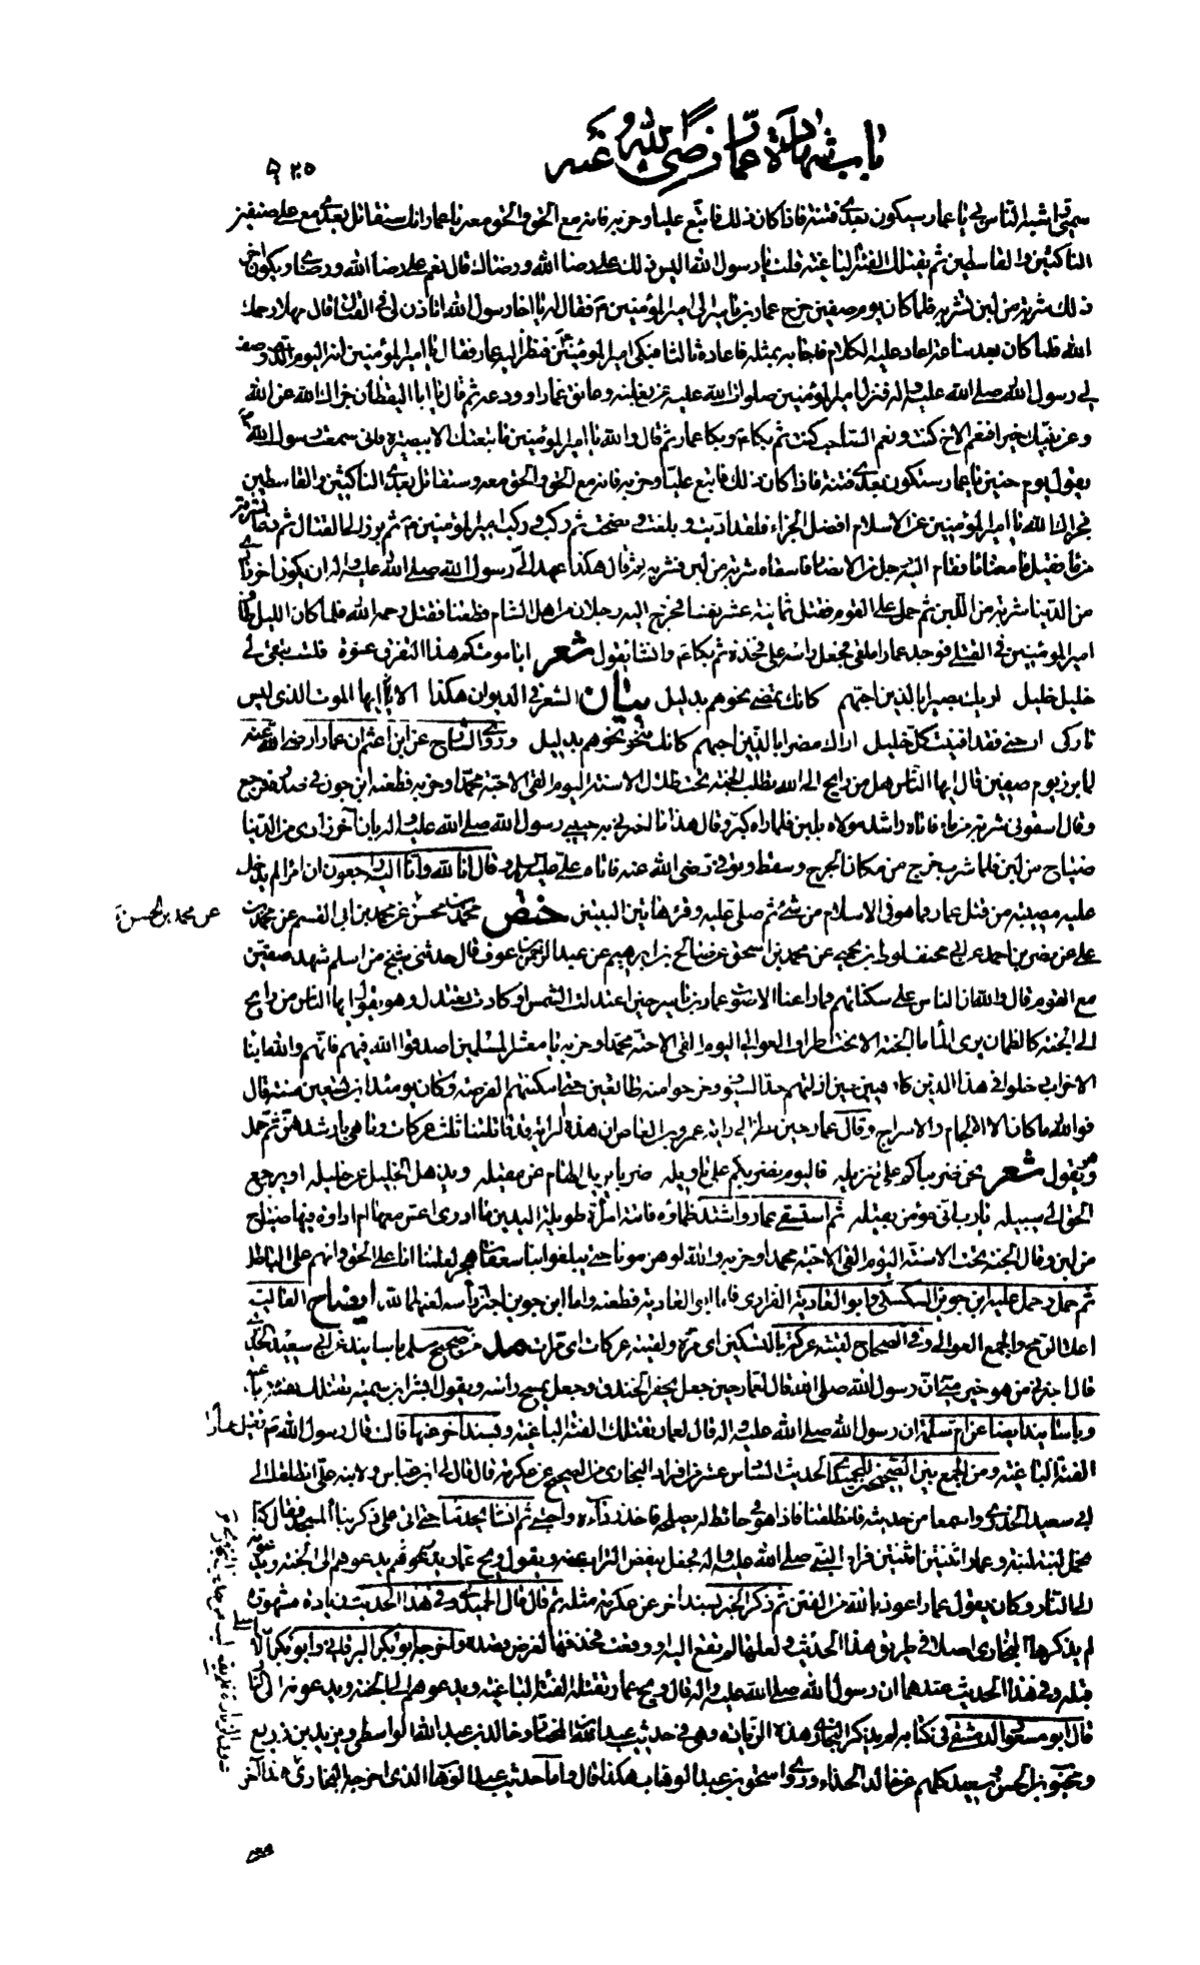 باب شهادة عمار رضي الله عنه
٥٢٥
سمي اشبه الناس بي يا عمار سيكون بعدي فتنة فاذا كان ذلك فاتبع عليا وحزبه فانه مع الحق والحق معه يا عمار انك ستقاتل بعدي مع علي صنفين
الناكثين والقاسطين ثم يقتلك الفئة الباغية قلت يا رسول الله اليس ذلك على رضا الله ورضاك قال نعم على رضا الله ورضاي ويكون اخر
ذلك شربة من لبن تشربه فلما كان يوم صفين خرج عمار بن ياسر الى امير المؤمنين م فقال له يا اخا رسول الله اتاذن لي في القتال قال مهلا رحمك
الله فلما كان بعد ساعة اعاد عليه الكلام فاجابه بمثله فاعاده ثالثا فبكى امير المؤمنين فنظر اليه عمار فقال يا امير المؤمنين انه اليوم الذي وصف
لي رسول الله صلى الله عليه واله فنزل امير المؤمنين صلوات الله عليه عن بغلته وعانق عمارا وودعه ثم قال يا ابا اليقظان جزاك الله عن الله
وعن نبيك خيرا فنعم الاخ كنت ونعم الصاحب كنت ثم بكا م وبكا عمار ثم قال والله يا امير المؤمنين ما تبعتك الا ببصيرة فاني سمعت رسول الله
يقول يوم حنين يا عمار ستكون بعدي فتنة فاذا كان ذلك فاتبع عليا وحزبه فانه مع الحق والحق معه وستقاتل بعدي الناكثين والقاسطين
فجزاك الله يا امير المؤمنين عن الاسلام افضل الجزاء فلقد اديت وبلغت ونصحت ثم ركب وركب امير المؤمنين م ثم برز الى القتال ثم دعا بشربة
من ماء فقيل ما معنا ماء فقام اليه رجل من الانصار فاسقاه شربة من لبن فشربه ثم قال هكذا عهد الي رسول الله صلى الله عليه واله ان يكون اخر زادي
من الدنيا شربة من اللبن ثم حمل على القوم فقتل ثمانية عشر نفسا فخرج اليه رجلان من اهل الشام فطعناه فقتل رحمه الله فلما كان الليل طاف
امير المؤمنين في القتلى فوجد عمارا ملقى فجعل راسه على فخذه ثم بكا م وانشا يقول شعر ايا موت كم هذا التفرق عنوة فلست تبقي لي
خليل خليل اريك بصيرا بالذين احبهم كانك تمضي نحوهم بدليل بيان الشعر في الديوان هكذا الا يا ايها الموت الذي ليس
تاركي ارحني فقد افنيت كل خليل اراك مضرا بالذين احبهم كانك تنحو نحوهم بدليل وروى الشارح عن ابن اعثم ان عمارا رضي الله عنه
لما برز يوم صفين قال ايها الناس هل من رايح الى الله يطلب الجنة تحت ظلال الاسنة اليوم القى الاحبة محمدا وحزبه فطعنه ابن جون في صدره فرجع
وقال اسقوني شربة من ماء فاتاه راشد مولاه بلبن فلما راه كبر وقال هذا ما اخبرني به حبيبي رسول الله صلى الله عليه واله بان آخر زادي من الدنيا
ضياح من لبن فلما شرب خرج من مكان الجرح وسقط وتوفي رضي الله عنه فاتاه علي عليه السلام وقال انا لله وانا اليه راجعون ان امرأ لم يدخل
عليه مصيبة من قتل عمار فما هو في الاسلام من شئ ثم صلى عليه وقرأ هاتين البيتين حنض محمد بن الحسن عن محمد بن ابى القسم عن محمد بن
عن محمد بن الحسن
علي عن نصر بن احمد عن ابي مخنف لوط بن يحيى عن محمد بن اسحق عن صالح بن ابراهيم عن عبد الرحمن بن عوف قال حدثني شيخ من اسلم شهد صفين
مع القوم قال والله ان الناس على سكناتهم فما راعنا الا صوت عمار بن ياسر حين اعتدلت الشمس او كادت تعتدل وهو يقول ايها الناس من رايح
الى الجنة كالظمان يرى الماء ما الجنة الا تحت اطراف العوالي اليوم القى الاحبة محمدا وحزبه يا معشر المسلمين اصدقوا الله فيهم فانهم والله ابناء
الاحزاب دخلوا في هذا الدين كارهين حين اذلتهم حد السيوف وخرجوا منه طائعين حتى امكنتهم الفرصة وكان يومئذ ابن تسعين سنة قال
فوالله ما كان الا الالجام والاسراج وقال عمار حين نظر الى راية عمرو بن العاص ان هذه الراية قد قاتلتنا ثلث عركات وما هي بارشدهن ثم حمل
وهو يقول شعر نحن ضربناكم على تنزيله فاليوم نضربكم على تاويله ضربا يزيل الهام عن مقيله ويذهل الخليل عن خليله او يرجع
الحق الى سبيله يا رب اني مؤمن بقيله ثم استسقى عمار واشتد ظماؤه فاتته امراة طويلة اليدين ما ادري اعس معها ام اداوة فيها ضياح
من لبن وقال الجنة تحت الاسنة اليوم القى الاحبة محمدا وحزبه والله لو هزمونا حتى يبلغوا بنا سعفات هجر لعلمنا انا على الحق وانهم على الباطل
ثم حمل وحمل عليه ابن جوين السكسكي وابو الغادية الفزاري فاما ابو الغادية فطعنه واما ابن جوين اجتز راسه لعنهما الله ايضاح العالية
اعلا الرمح والجمع العوالي وفي الصحاح لقيته عركة بالتسكين اى مرة ولقيته عركات اى مرات مد من صحيح مسلم باسانيده عن ابي سعيد الخدري
قال اخبرني من هو خير مني ان رسول الله صلى الله قال لعمار حين جعل يحفر الخندق وجعل يمسح راسه ويقول بؤس ابن سمية تقتلك فئة باغية
وباسناده ايضا عن ام سلمة ان رسول الله صلى الله عليه واله قال لعمار تقتلك الفئة الباغية وبسند اخر عنها قالت قال رسول الله م تقتل عمارا
الفئة الباغية ومن الجمع بين الصحيحين للحميدي الحديث السادس عشر من افراد البخاري من الصحيح عن عكرمة قال قال لي ابن عباس ولابنه علي انطلقا الى
ابي سعيد الخدري واسمعا من حديثه فانطلقنا فاذا هو في حائط له يصلحه فاخذ رداءه واحتبى ثم انشا يحدثنا حتى اتى على ذكر بناء المسجد فقال كنا
نحمل لبنة لبنة وعمار لبنتين لبنتين فراه النبي صلى الله عليه واله فجعل ينفض التراب عنه ويقول ويح عمار يدعوهم الى الجنة ويدعونه
الى النار وكان يقول عمار اعوذ بالله من الفتن ثم ذكر الخبر بسند اخر عن عكرمة مثله ثم قال قال الحميدي وفي هذا الحديث زيادة مشهورة
لم يذكرها البخاري اصلا في طريق هذا الحديث ولعلها لم تقع اليه او وقعت فحذفها لغرض قصده واخرجه ابو بكر البرقاني وابو بكر الاسماعيلي
قبله وفي هذا الحديث عندهما ان رسول الله صلى الله عليه واله قال ويح عمار تقتله الفئة الباغية ويدعوهم الى الجنة ويدعونه الى النار
قال ابو مسعود الدمشقي في كتابه لم يذكر البخاري هذه الزيادة وهي في حديث عبد الله المختار وخالد بن عبد الله الواسطي ويزيد بن زريع
ومحبوب بن الحسن وسعيد كلهم عن خالد الحذاء وروى اسحق بن عبد الوهاب هكذا قال واما حديث عبد الوهاب الذي اخرجه البخاري هذا آخر